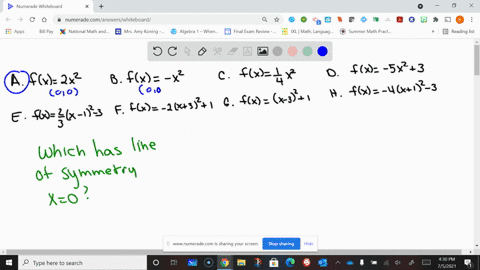 Numerade Whiteboard
numerade.com/answers/whiteboard/
Apps
Bill Pay
National Math and...
Mrs. Amy Koning -...
Algebra 1 - Whenev...
Final Exam Review -...
IXL | Math, Languag...
Summer Math Pract...
Reading list
A. f(x)=2x² B. f(x)=-x² C. f(x)=1/4 x² D. f(x)=-5x²+3
(0,0) (0,0
E. f(x)=2/3(x-1)²-3 F. f(x)=-2(x+3)²+1 G. f(x)=(x-3)²+1 H. f(x)=-4(x+1)²-3
Which has line
of symmetry
x=0?
www.numerade.com is sharing your screen.
Stop sharing
Hide
Type here to search
4:30 PM
7/5/2021